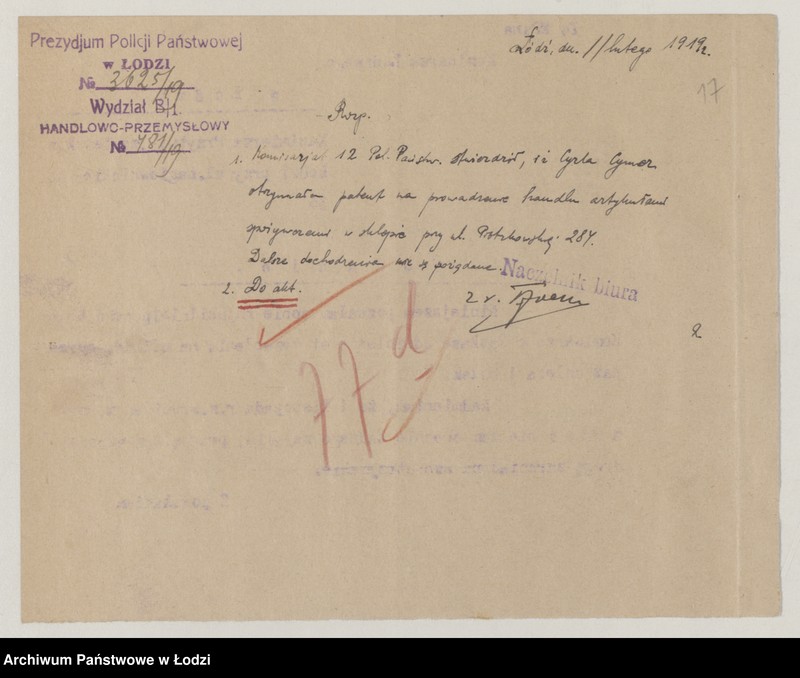 Prezydjum Policji Państwowej
w ŁODZI
№ 3625/19
Wydział B/1.
HANDLOWO-PRZEMYSŁOWY
№ 781/19
Łódź, dn. 11 lutego 1919 r.
17
Rozp.
1. Komisarjat 12 Pol. Państw. stwierdził, iż Cyrla Cymer
otrzymała patent na prowadzenie handlu artykułami
spożywczemi w sklepie przy ul. Piotrkowskiej 284.
Dalsze dochodzenia nie są pożądane.
2. Do akt.
Naczelnik biura
z r.
77d